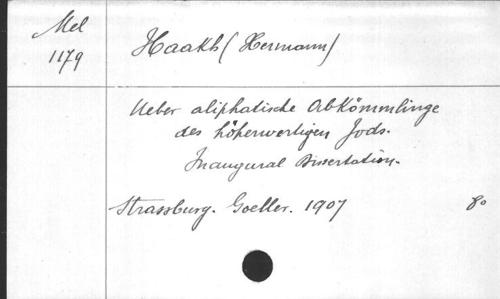 Mel
1179
Haakh (Hermann)
Ueber aliphatische Abkömmlinge
des höherwertigen Jods.
Inaugural Dissertation.
Strassburg. Goeller. 1907 80